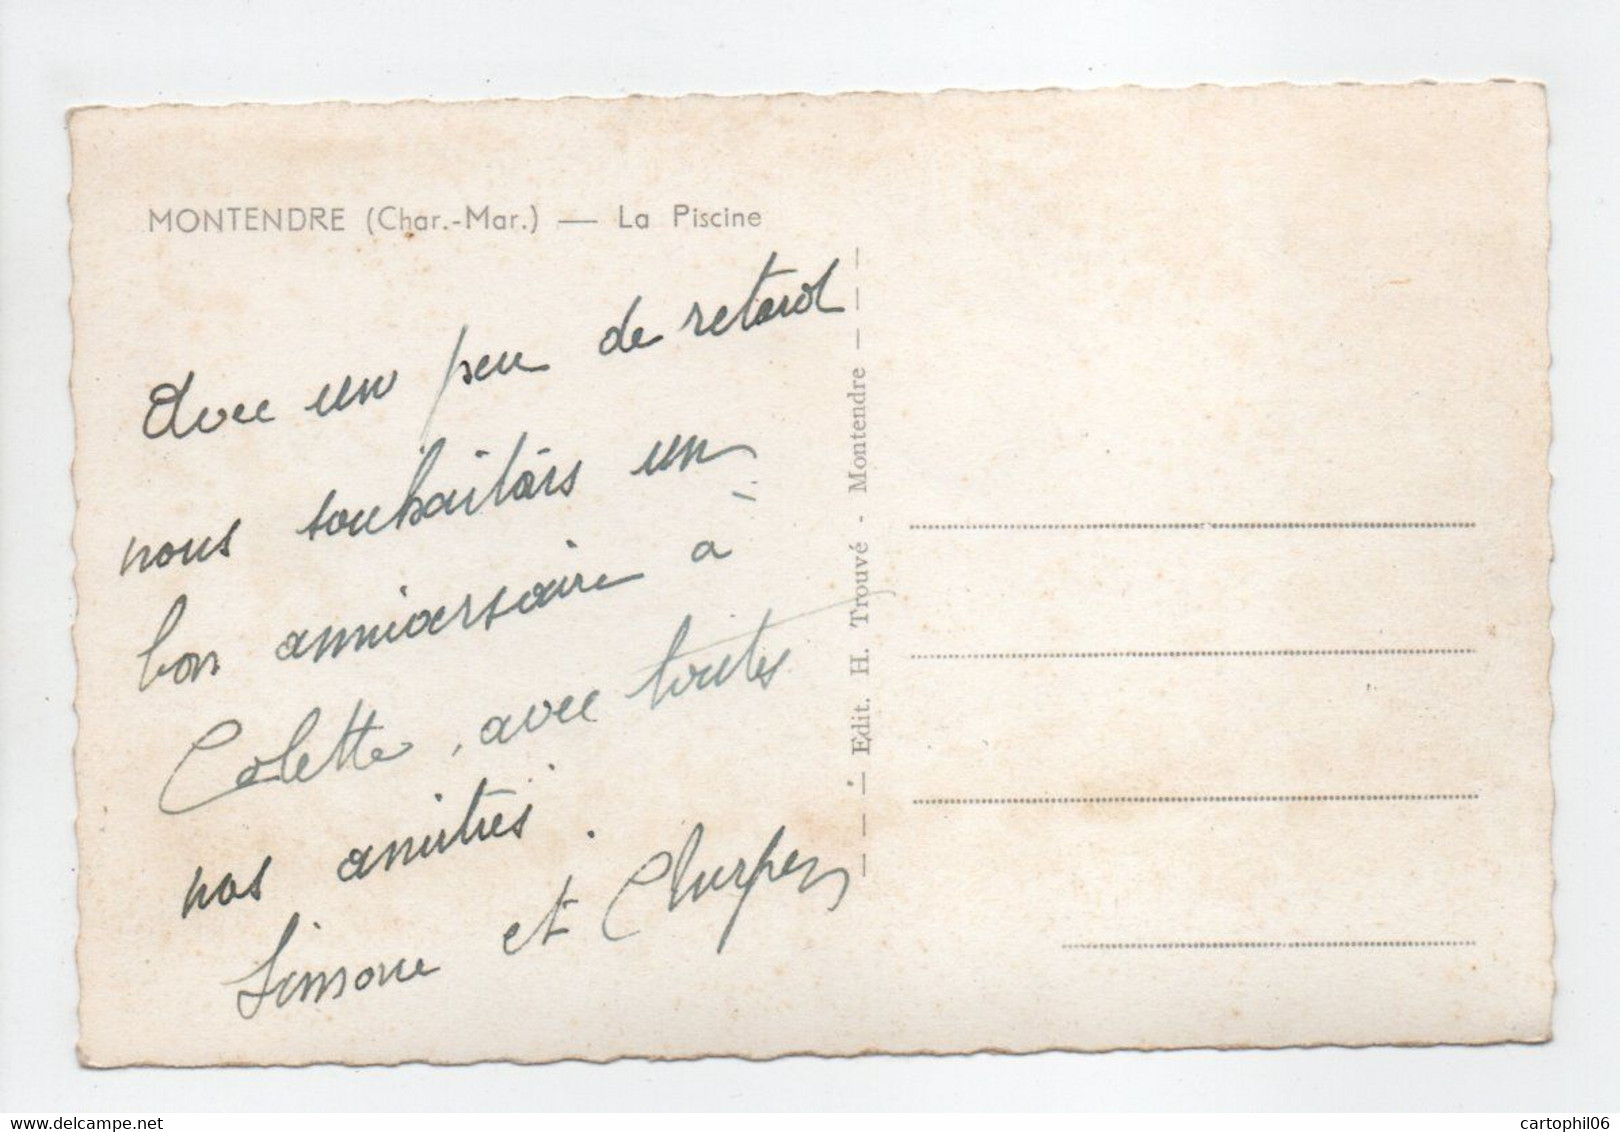 MONTENDRE (Char.-Mar.) — La Piscine
Avec un peu de retard
nous souhaitons un
bon anniversaire à
Colette, avec toutes
nos amitiés.
Simone et
Edit. H. Trouvé - Montendre
cartophil06